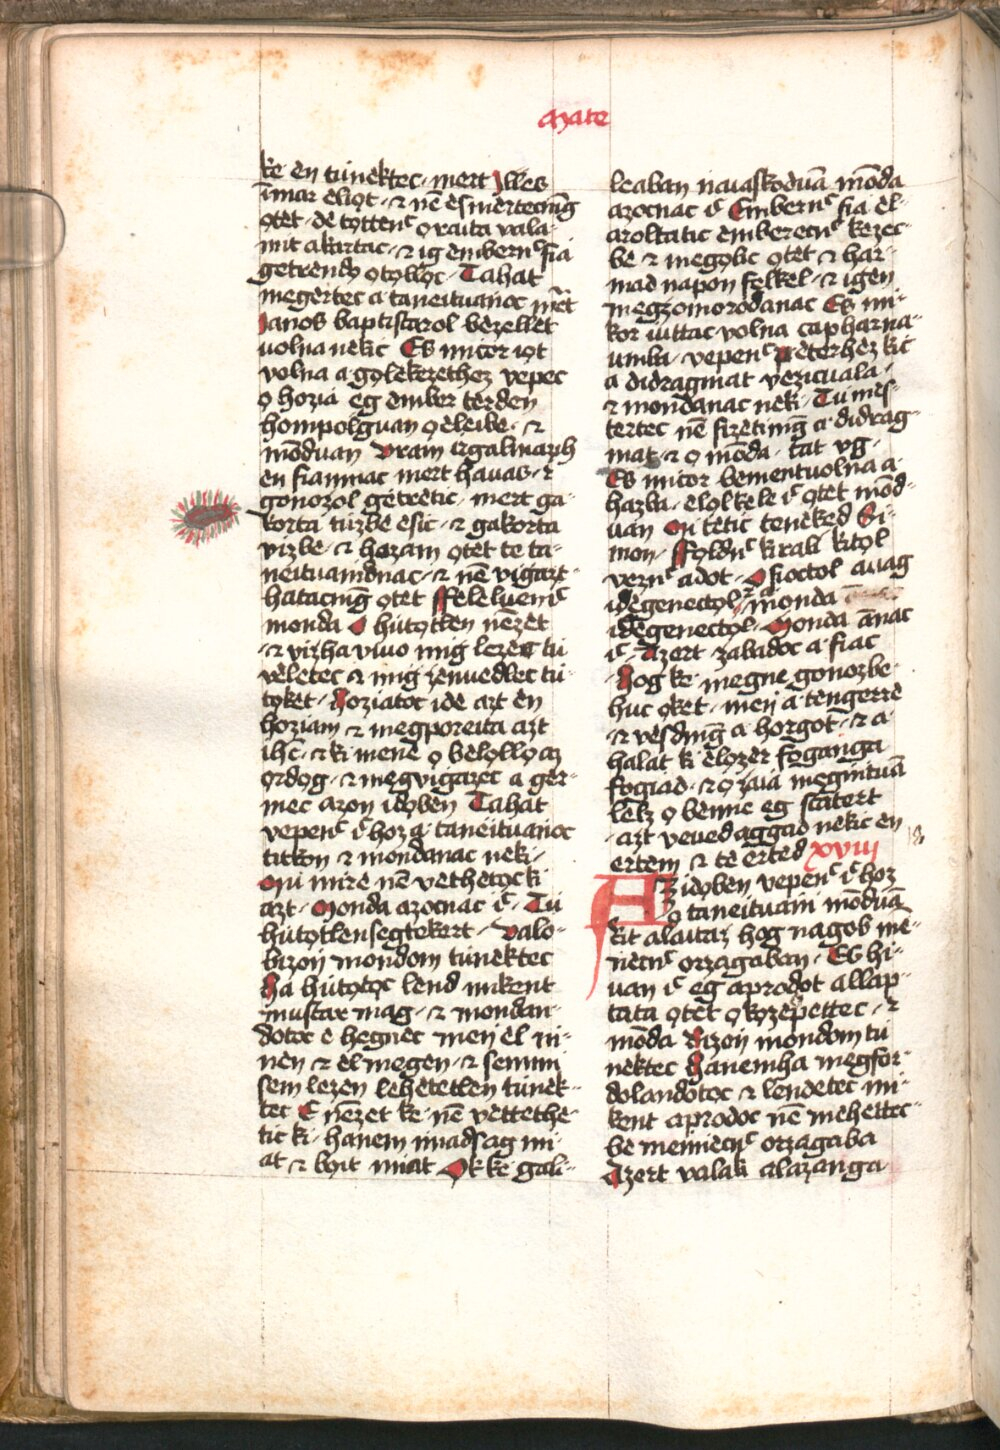 Mate
ke en túnektec · mert Illes
īmar eliọt · ⁊ nē eſmertecmīg
ọtèt · de tọttenᶜ ọraita vala-
mit akartac · ⁊ ig embernᶜ fia
getrendọ ọtọllọc · Tahat
megèrtec a taneituańoc mēt
Ianos baptiſtarol bèzellèt
uolna nèkic Es micor iọt
volna a gọlekezethez vèpec
ọ hozia èg ember tèrden
hompolguan ọ èleibè · ⁊
mōduan Vram irgalmazıh
en fiamnac mert hauas · ⁊
gonozol getrètic · mert ga-
korta tūzbè esic · ⁊ gakorta
vizbè · ⁊ hozam ọtèt te ta-
neituanidnac · ⁊ nē vigazt-
hatacmīg ọtèt Felelueniᶜ
monda O hútọtlen nēzèt
· ⁊ vizha viuo mīg lezèc tú
vèletèc ⁊ mīg zenuedlèc tú-
tọkèt · Hoziatoc ide azt en
hoziam ⁊ megporeita azt
ihᶜ · ⁊ ki menè ọ bèlọllọ az
ọrdọg · ⁊ mègvigazèc a gèr-
mec azon idọben Tahat
vèpenᶜ iᶜ hoz a · taneituańoc
titkon ⁊ mondanac nèki ·
Mi mire nē vèthètọc ki
azt · Monda azocnac iᶜ · Tú
hútọtlensegtekert · Valo-
bizon mondom túnektèc
Ha hútọtọc lènd mikènt
muſtar mag · ⁊ mondan-
dotoc e hègnèc meń èl in-
nèn ⁊ èl mègen · ⁊ semmi
sem lèzen lèhètètlèn túnèk-
tèc E nèzèt kè · nē vèttethe-
tic ki · hanem imadſag mi-
at ⁊ bọit miat Ok kè gali-
leaban nauaſkoduā mōda
azocnac iᶜ Embernᶜ fia èl-
aroltatic èmberecnᶜ kezec-
bè ⁊ megọlic ọtèt ⁊ har-
mad napon fèlkèl · ⁊ igen
mègzomorodanac Es mi-
kor iuttac volna capharna-
umba · vèpenᶜ Pèterhèz kic
a didragmat vèzicuala ·
⁊ mondanac nèki · Tú mes-
tèrtèc nē fizètimīg a didrag-
mat · ⁊ ọ mōda · tat vg ·
Es micor bèmentuolna a
hazba · èlọl kèlè iᶜ ọtèt mōd-
uan Mi tètic tenèkèd Si-
mon · Fọldnᶜ kirali kitọl
vèznᶜ adot · O fioctol auag
idègenectọl ⁊ a mōnda
idègenectọl · Monda ānac
iᶜ · Azert zabadoc a fiac
· Hog kè · mègnè gonozbè-
huc ọkèt · meń a tèngèrrè
⁊ vèsdmīg a horgot · ⁊ a
halat ki èlọzer fọganga
fogiad · ⁊ ọ zaia mègnituā
lèlz ọ bènnè èg ſtatèrt
· azt vèuèd aggad nèkic en
èrtem ⁊ te èrtèd xviii
AZ idọben vèpenᶜ iᶜ hoz
ọ taneituańi mōduā
Kit alaitaz hog nagob mè-
nècnᶜ orzagaban · Es hi-
uan iᶜ èg aprodot allap-
tata ọtèt ọ kọzèpèttèc · ⁊
mōda Bizoń mondom tú
nèktèc Hanèmha mègfor-
dolandotoc ⁊ lèndètèc mi-
kènt aprodoc nē mèhèttèc-
bè mènńècnᶜ orzagaba
Azert valaki alazanga